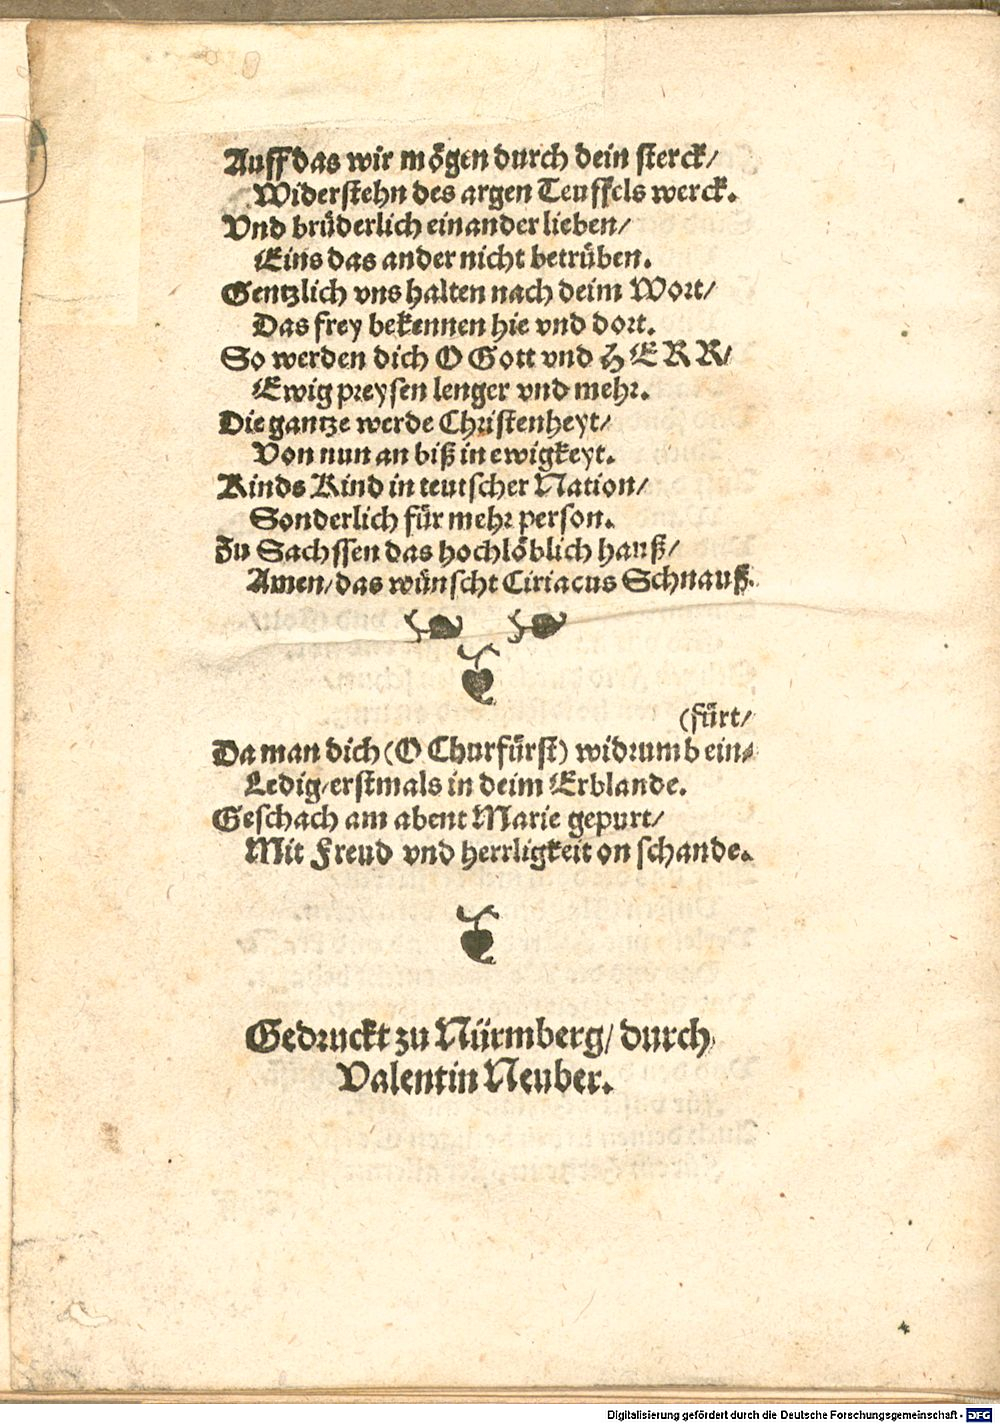 Auff das wir mögen durch dein sterck/
Widerstehn des argen Teuffels werck.
Vnd brüderlich einander lieben/
Eins das ander nicht betrüben.
Gentzlich vns halten nach deim Wort/
Das frey bekennen hie vnd dort.
So werden dich O Gott vnd HERR/
Ewig preysen lenger vnd mehr.
Die gantze werde Christenheyt/
Von nun an biß in ewigkeyt.
Kinds Kind in teutscher Nation/
Sonderlich für mehr person.
Zu Sachssen das hochlöblich hauß/
Amen/das wünscht Ciriacus Schnauß.
(fürt/
Da man dich (O Churfürst) widrumb ein⸗
Ledig/erstmals in deim Erblande.
Geschach am abent Marie gepurt/
Mit Freud vnd herrligkeit on schande.
Gedruckt zu Nürmberg/ durch
Valentin Neuber.
Digitalisierung gefördert durch die Deutsche Forschungsgemeinschaft - DFG